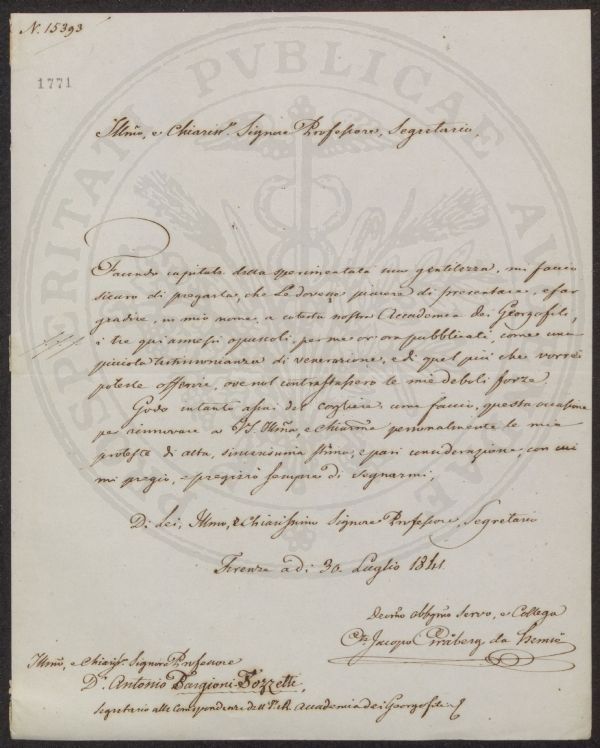 N. 15393
1771
PROSPERITATI PVBLICAE AVGENDAE
Illmo, e Chiariss. Signore Professore, Segretario,
Facendo capitale della sperimentata sua gentilezza, mi faccio
sicuro di pregarla, che Le dovesse piacere di presentare, e far
gradire, in mio nome, a cotesta nostra Accademia dei Georgofili,
i tre qui annessi opuscoli, per me or ora pubblicati, come una
piccola testimonianza di venerazione, e di quel più che vorrei
poterle offerire, ove nol contrastassero le mie deboli forze
Godo intanto assai del cogliere, come faccio, questa occasione
per rinnovare a V.S. Illma, e Chiarma personalmente le mie
proteste di alta, sincerissima stima, e pari considerazione, con cui
mi pregio, e pregierò sempre di segnarmi,
Di Lei, Illmo, e Chiarissimo Signore Professore, Segretario
Firenze a dì 30 Luglio 1841
Devmo obbgmo servo, e Collega
Cte Jacopo Gråberg da Hemsö
Illmo, e Chiariss. Signore Professore
Dr. Antonio Targioni-Tozzetti,
Segretario alle Corrispondenze dell' I. e R. Accademia dei Georgofili